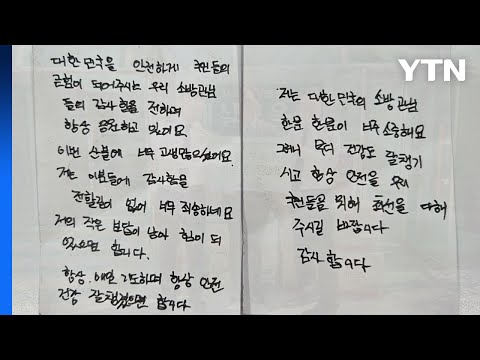 YTN
대한민국을 안전하게 국민들의
근원이 되어주시는 우리 소방관님
들의 감사함을 전하며
항상 응원하고 있어요
이번 산불에 너무 고생많으셨어요
저는 이분들에 감사함을
전할길이 없어 너무 죄송하네요
저의 작은 보답이 남아 힘이 되
었으면 합니다.
항상. 매일 기도하며 항상 안전
건강 잘챙겼으면 합니다
저는 대한민국의 소방관님
한분 한분이 너무 소중해요
그러니 부디 건강도 잘챙기
시고 항상 안전을 우리
국민들을 위해 최선을 다해
주시길 바랍니다
감사합니다